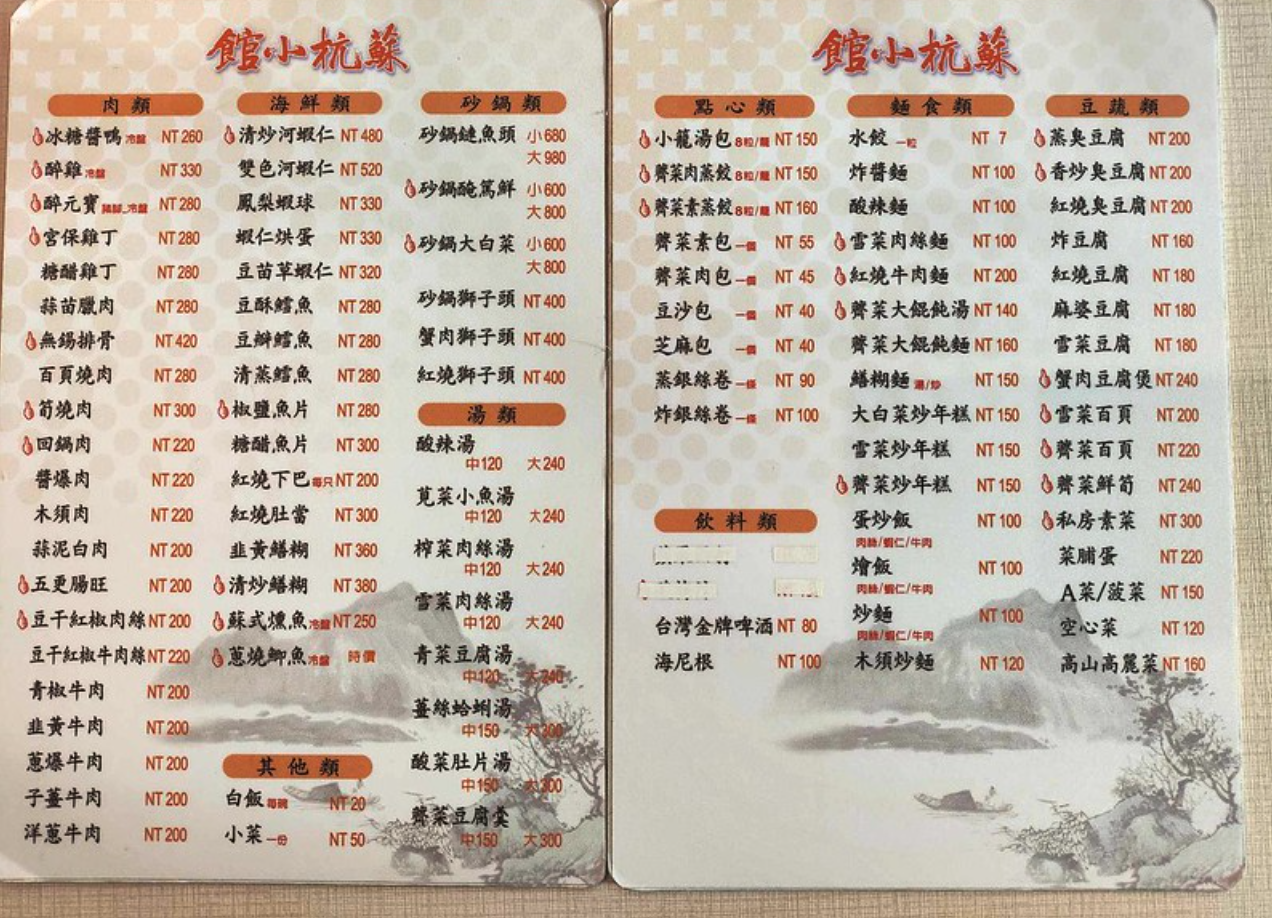 館小杭蘇
肉類
冰糖醬鴨 冷盤 NT 260
醉雞 冷盤 NT 330
醉元寶 豬腳_冷盤 NT 280
宮保雞丁 NT 280
糖醋雞丁 NT 280
蒜苗臘肉 NT 280
無錫排骨 NT 420
百頁燒肉 NT 280
筍燒肉 NT 300
回鍋肉 NT 220
醬爆肉 NT 220
木須肉 NT 220
蒜泥白肉 NT 200
五更腸旺 NT 200
豆干紅椒肉絲 NT 200
豆干紅椒牛肉絲 NT 220
青椒牛肉 NT 200
韭黃牛肉 NT 200
蔥爆牛肉 NT 200
子薑牛肉 NT 200
洋蔥牛肉 NT 200
海鮮類
清炒河蝦仁 NT 480
雙色河蝦仁 NT 520
鳳梨蝦球 NT 330
蝦仁烘蛋 NT 330
豆苗草蝦仁 NT 320
豆酥鱈魚 NT 280
豆瓣鱈魚 NT 280
清蒸鱈魚 NT 280
椒鹽魚片 NT 280
糖醋魚片 NT 300
紅燒下巴 每只 NT 200
紅燒肚當 NT 300
韭黃鱔糊 NT 360
清炒鱔糊 NT 380
蘇式燻魚 冷盤 NT 250
蔥燒鯽魚 冷盤 時價
其他類
白飯 每碗 NT 20
小菜 一份 NT 50
砂鍋類
砂鍋鰱魚頭 小680
大980
砂鍋醃篤鮮 小600
大800
砂鍋大白菜 小600
大800
砂鍋獅子頭 NT 400
蟹肉獅子頭 NT 400
紅燒獅子頭 NT 400
湯類
酸辣湯
中120 大240
莧菜小魚湯
中120 大240
榨菜肉絲湯
中120 大240
雪菜肉絲湯
中120 大240
青菜豆腐湯
中120 大240
薑絲蛤蜊湯
中150 大300
酸菜肚片湯
中150 大300
薺菜豆腐羹
中150 大300
館小杭蘇
點心類
小籠湯包 8粒/籠 NT 150
薺菜肉蒸餃 8粒/籠 NT 150
薺菜素蒸餃 8粒/籠 NT 160
薺菜素包 一個 NT 55
薺菜肉包 一個 NT 45
豆沙包 一個 NT 40
芝麻包 一個 NT 40
蒸銀絲卷 一條 NT 90
炸銀絲卷 一條 NT 100
飲料類
台灣金牌啤酒 NT 80
海尼根 NT 100
麵食類
水餃 一粒 NT 7
炸醬麵 NT 100
酸辣麵 NT 100
雪菜肉絲麵 NT 100
紅燒牛肉麵 NT 200
薺菜大餛飩湯 NT 140
薺菜大餛飩麵 NT 160
鱔糊麵 湯/炒 NT 150
大白菜炒年糕 NT 150
雪菜炒年糕 NT 150
薺菜炒年糕 NT 150
蛋炒飯 NT 100
肉絲/蝦仁/牛肉
燴飯 NT 100
肉絲/蝦仁/牛肉
炒麵 NT 100
肉絲/蝦仁/牛肉
木須炒麵 NT 120
豆蔬類
蒸臭豆腐 NT 200
香炒臭豆腐 NT 200
紅燒臭豆腐 NT 200
炸豆腐 NT 160
紅燒豆腐 NT 180
麻婆豆腐 NT 180
雪菜豆腐 NT 180
蟹肉豆腐煲 NT 240
雪菜百頁 NT 200
薺菜百頁 NT 220
薺菜鮮筍 NT 240
私房素菜 NT 300
菜脯蛋 NT 220
A菜/菠菜 NT 150
空心菜 NT 120
高山高麗菜 NT 160